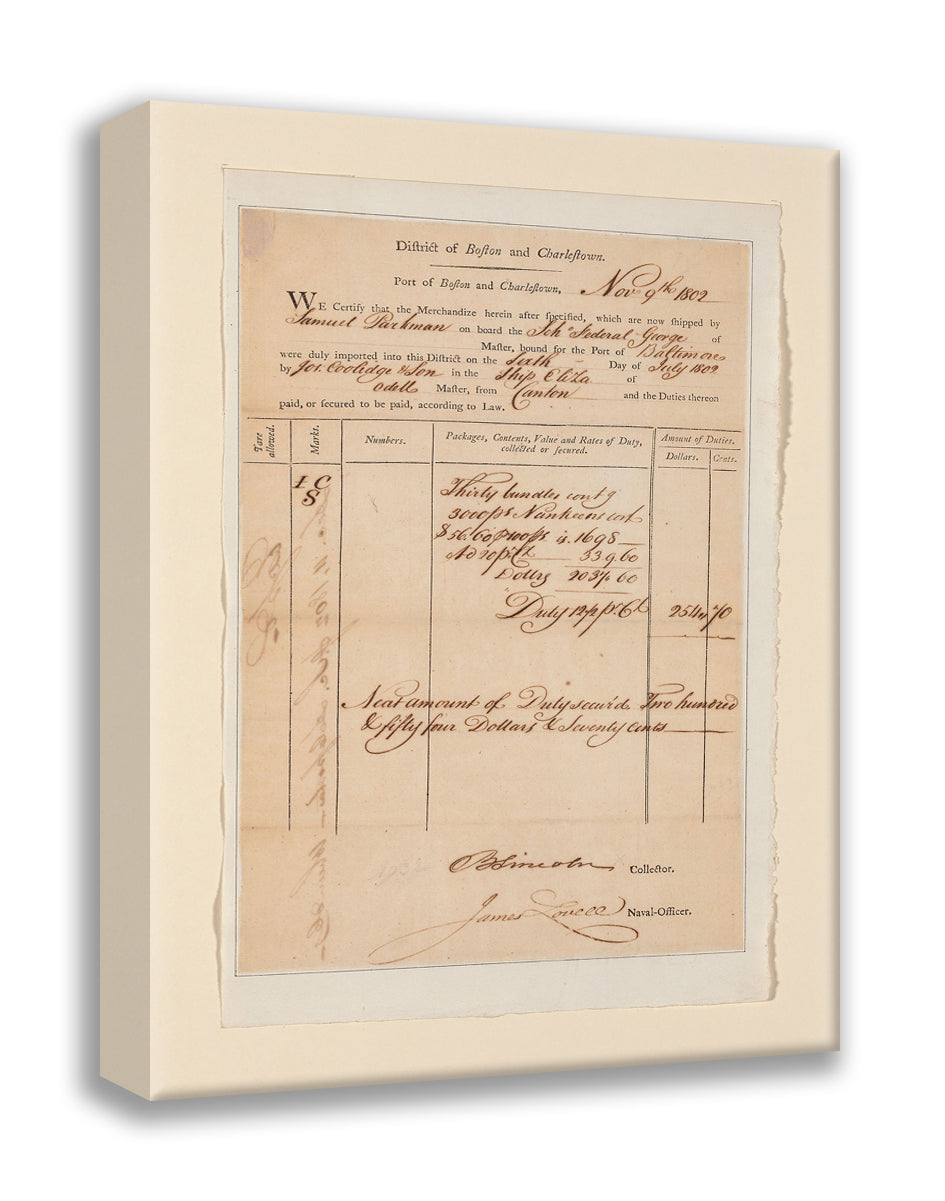 District of Boston and Charlestown.
Port of Boston and Charlestown, Nov 9th 1802
WE Certify that the Merchandize herein after specified, which are now shipped by
Samuel Parkman on board the Schr Federal George of
Master, bound for the Port of Baltimore
were duly imported into this District on the Sixth Day of July 1802
by Jos. Coolidge & Son in the Ship Eliza of
Odell Master, from Canton and the Duties thereon
paid, or secured to be paid, according to Law.
Tare allowed. Marks. Numbers. Packages, Contents, Value and Rates of Duty, collected or secured. Amount of Duties.
Dollars. Cents.
I C
S
Thirty bundles contg
3000 ps Nankeens cost
$56.60 p 100 ps is 1698
Ad 20 pr Ct 339.60
Dollrs 2037.60
Duty 12 1/2 pr Ct 254 70
Neat amount of Duty secur'd Two hundred
& fifty four Dollars & Seventy cents
B Lincoln Collector.
James Lovell Naval-Officer.